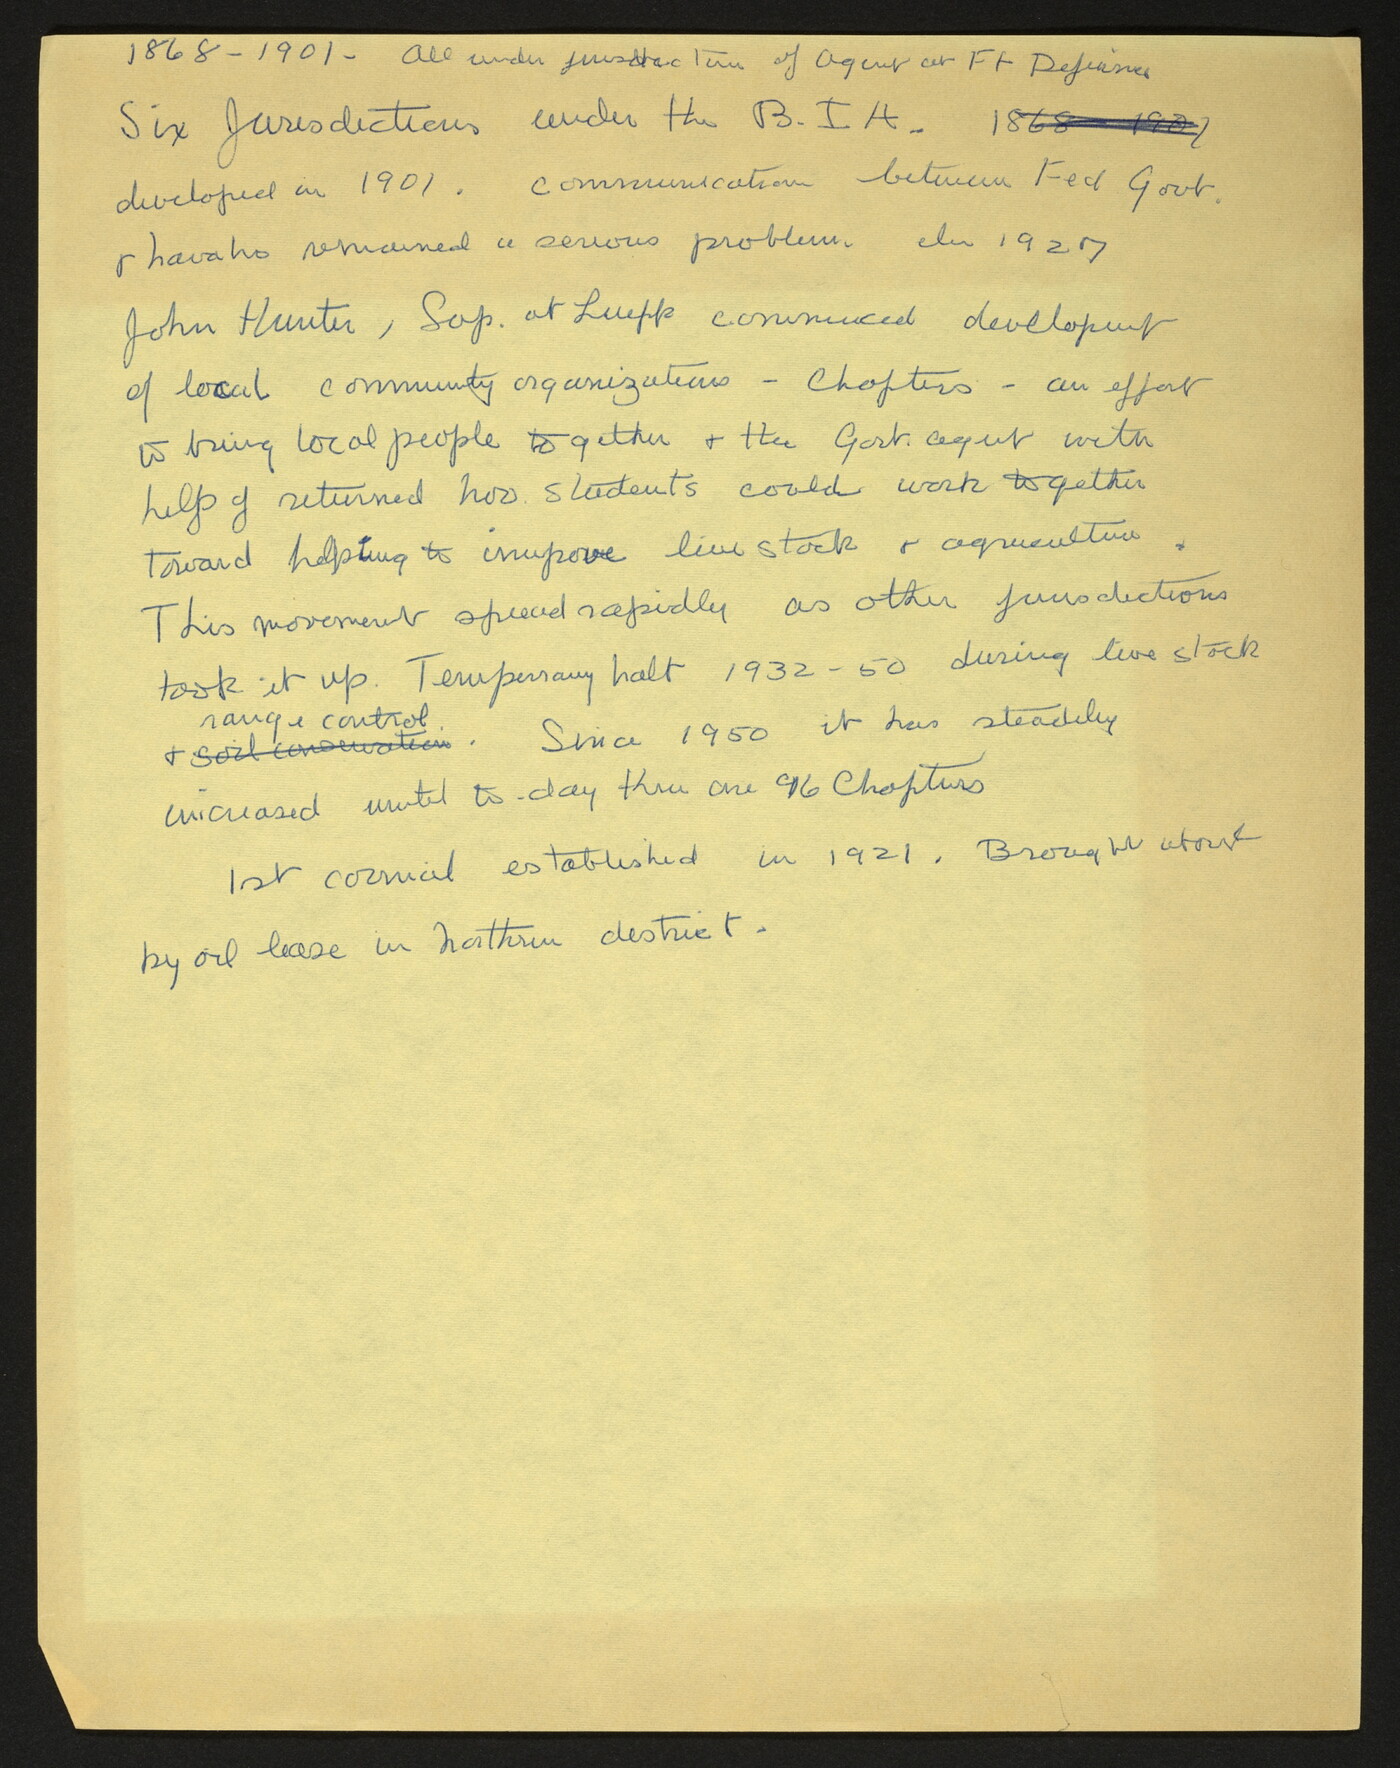 1868-1901- All under jurisdiction of Agent at Ft Defiance
Six Jurisdictions under the B.I.A. 1868-1907
developed in 1901. Communication between Fed Govt.
& Navaho remained a serious problem. In 1927
John Hunter, Sup. at Leupp commenced development
of local community organizations - Chapters - an effort
to bring local people together & the Govt. agent with
help of returned Nav. Students could work together
toward helping to improve live stock & agriculture.
This movement spread rapidly as other jurisdictions
took it up. Temperrary halt 1932-50 during live stock
range control
& soil conservation. Since 1950 it has steadily
increased until to-day thru are 96 Chapters
1st council established in 1921. Brought about
by oil lease in Northern district.